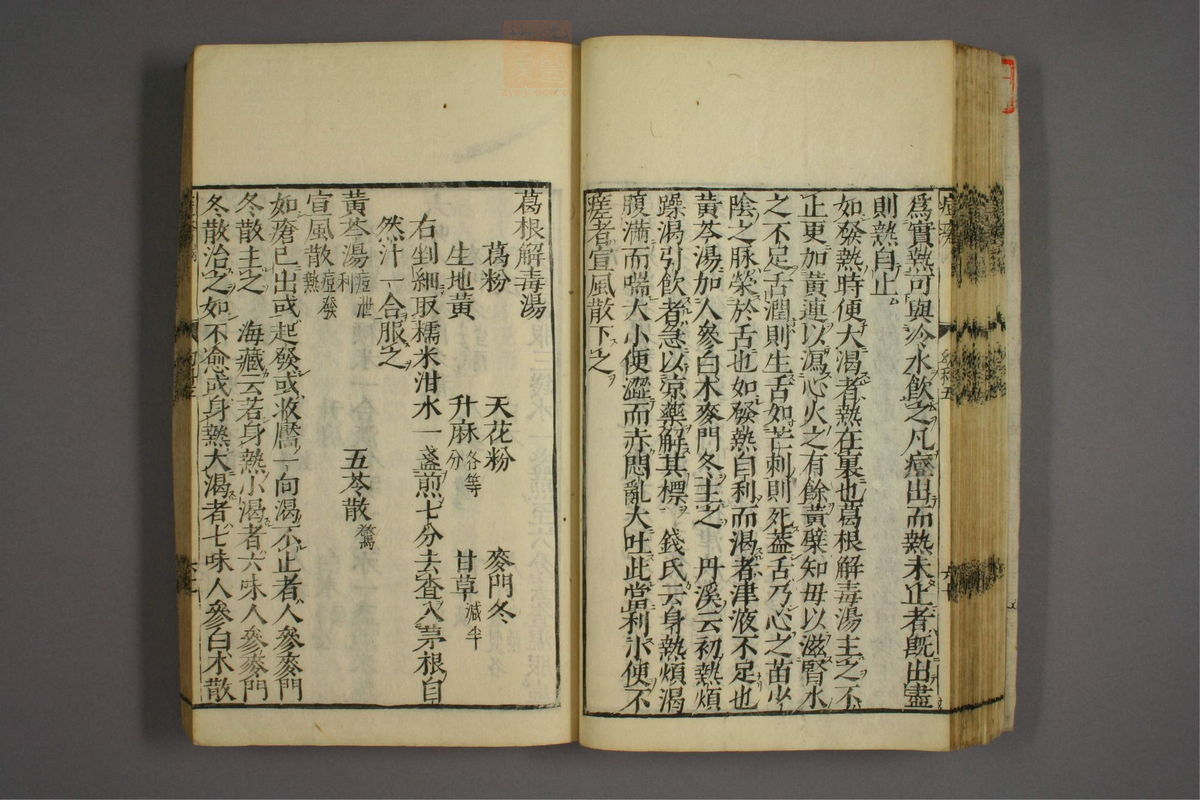 爲實熱可與冷水飲之凡瘡出而熱未止者旣出盡
則熱自止
如發熱時便大渴者熱在裏也葛根解毒湯主之不
止更加黃連以瀉心火之有餘黃蘗知母以滋腎水
之不足舌潤則生舌如芒刺則死蓋舌乃心之苗少
陰之脉榮於舌也如發熱自利而渴者津液不足也
黃芩湯加人參白朮麥門冬主之 丹溪云初熱煩
躁渴引飲者急以凉藥解其標 錢氏云身熱煩渴
腹滿而喘大小便澀而赤悶亂大吐此當利小便不
瘥者宣風散下之
葛根解毒湯
葛粉 天花粉 麥門冬
生地黃 升麻各等分 甘草減半
右剉細取糯米泔水一盞煎七分去査入茅根自
然汁一合服之
黃芩湯痘泄利 五苓散
宣風散痘發熱
如瘡已出或起發或收靨一向渴不止者人參麥門
冬散主之 海藏云若身熱小渴者六味人參麥門
冬散治之如不愈或身熱大渴者七味人參白朮散